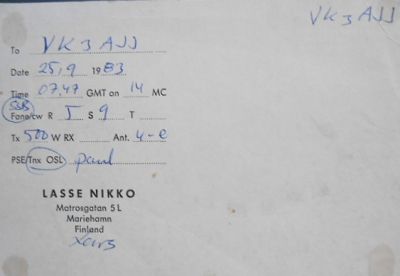 VK3AJJ
To VK3AJJ
Date 25,9 1983
Time 07,47 GMT on 14 MC
SSB
Fone/cw R 5 S 9 T
Tx 500 W RX Ant. 4-e
PSE/Tnx QSL paul
LASSE NIKKO
Matrosgatan 5 L
Mariehamn
Finland